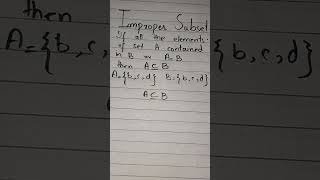 Improper Subset
If all the elements
of set A contained
in B or A=B
then A⊂B
A={b,c,d} B={b,c,d}
A⊂B
then
A={b,c,
{b,c,d}